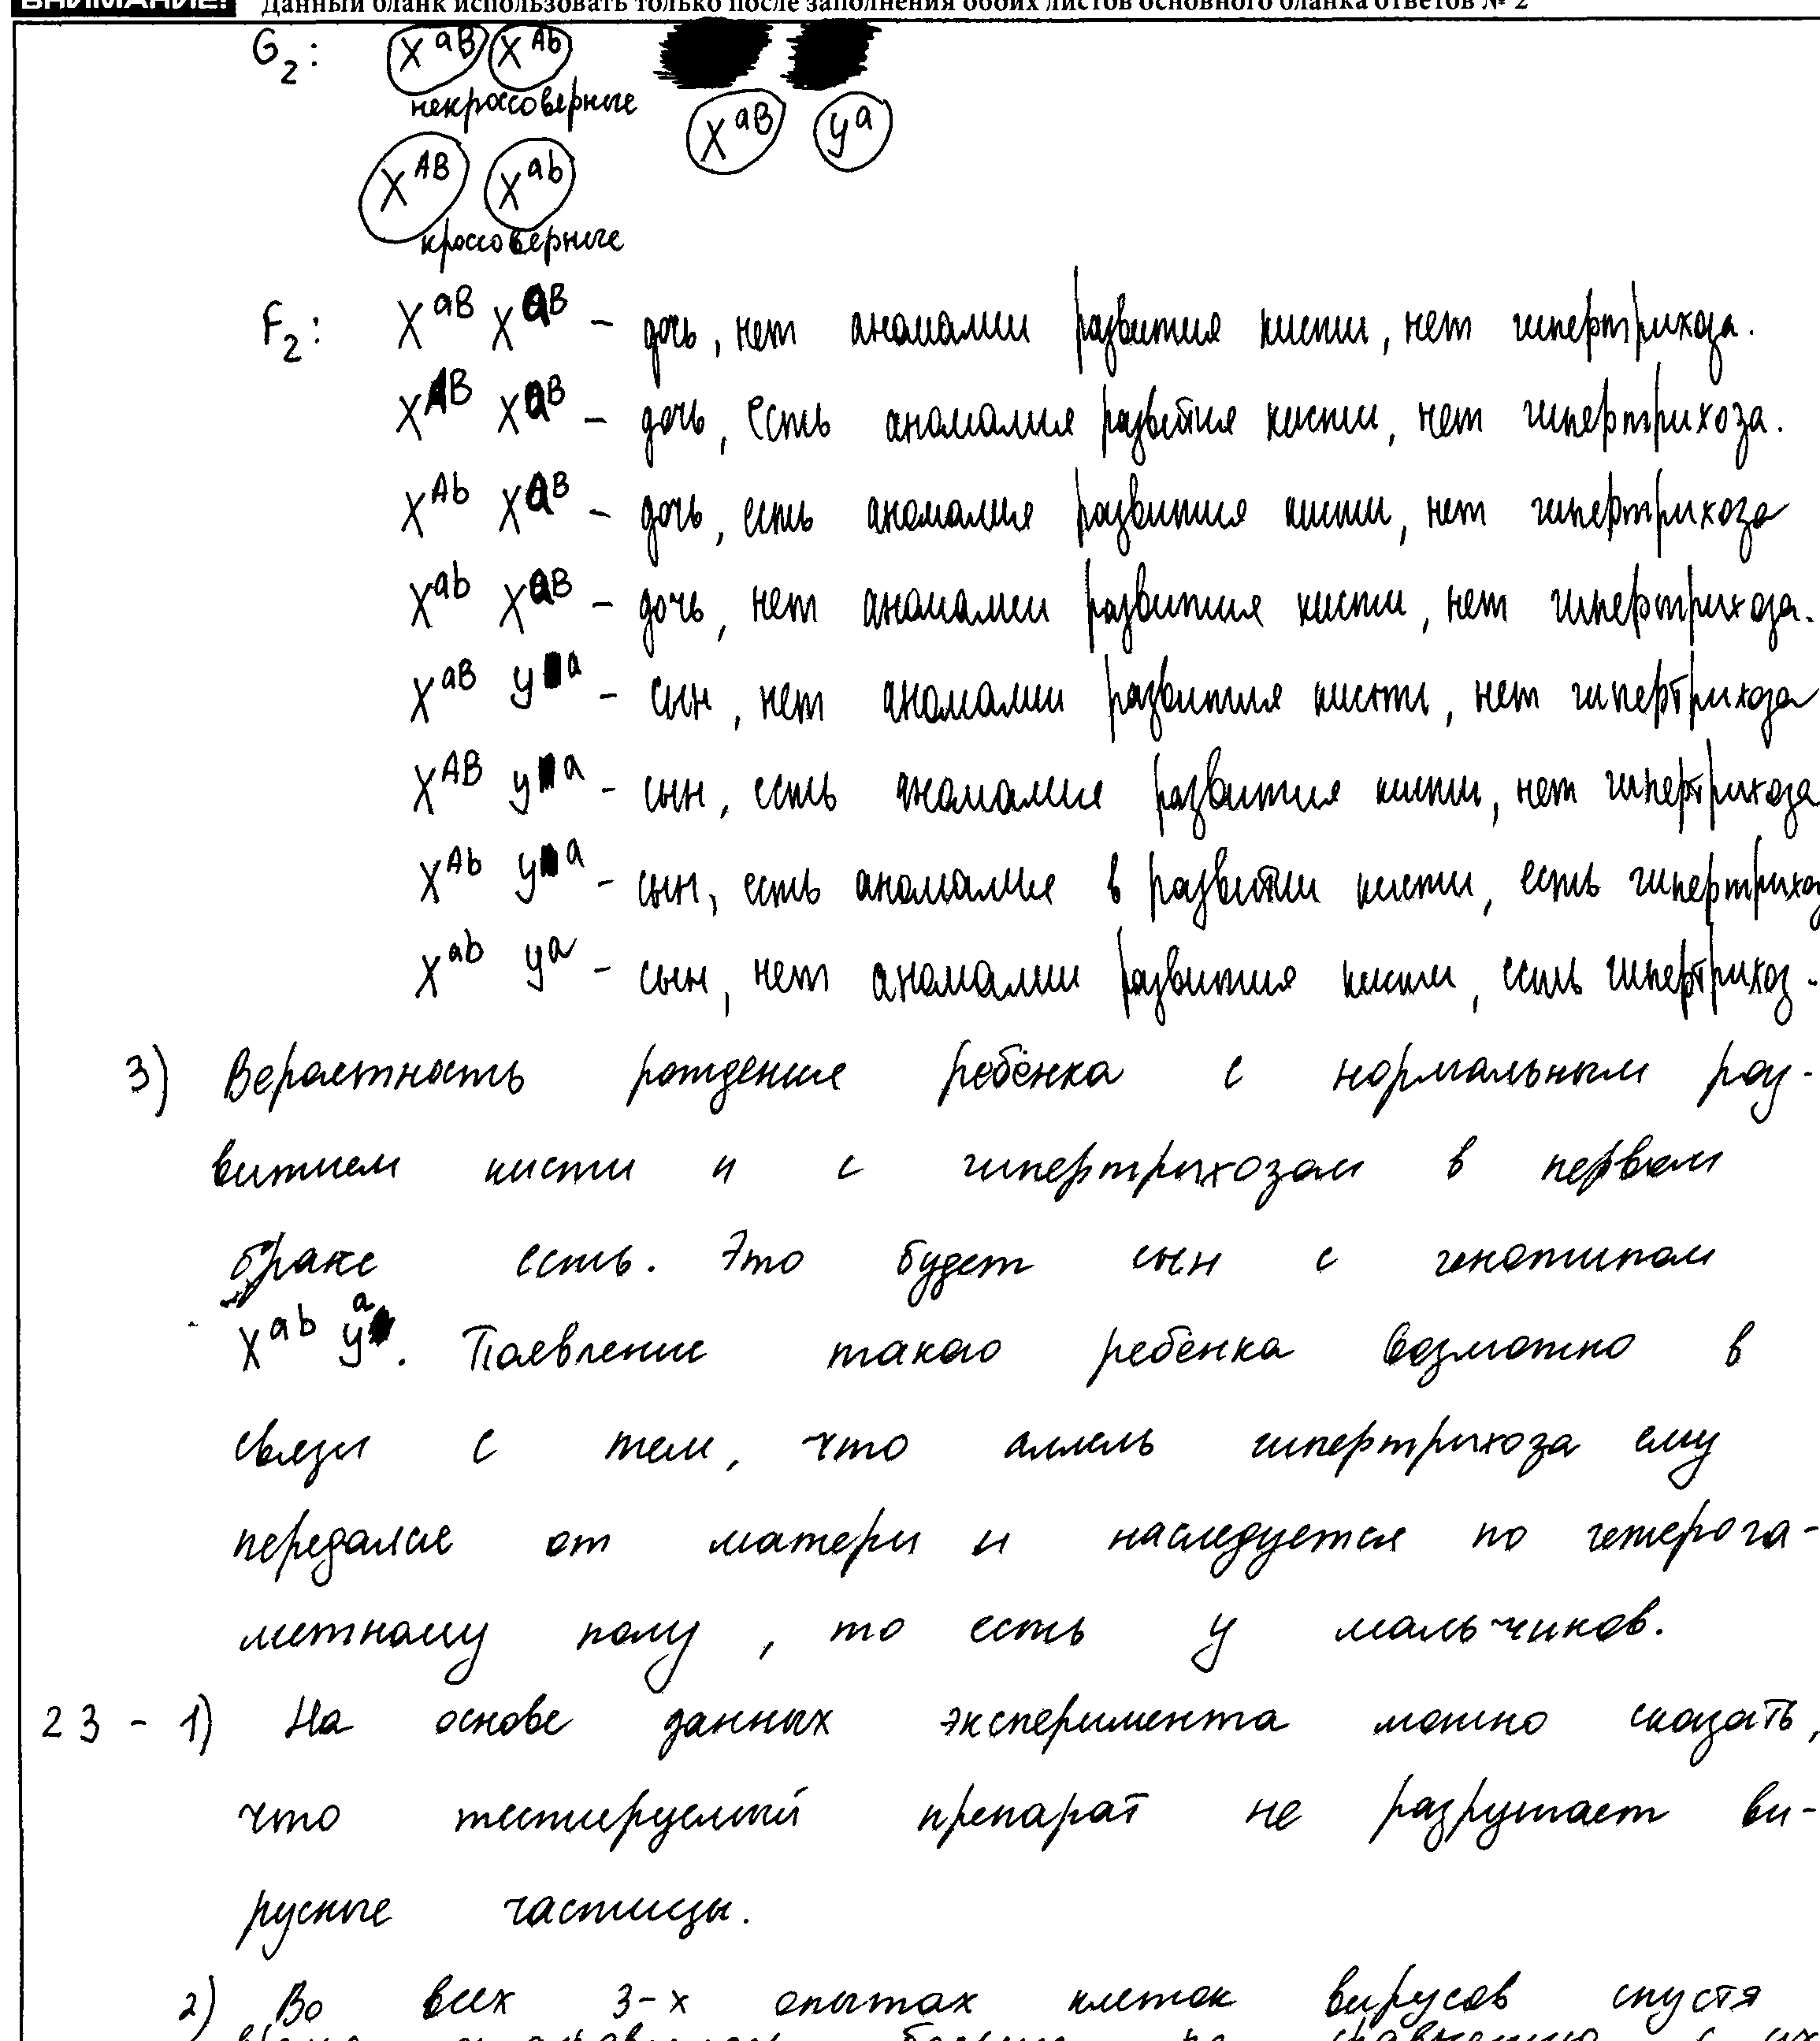 ВНИМАНИЕ! Данный бланк использовать только после заполнения обоих листов основного бланка ответов № 2
G₂: X^aB X^Ab
некроссоверные
X^aB y^a
X^AB X^ab
кроссоверные
F₂: X^aB X^aB – дочь, нет аномалии развития кисти, нет гипертрихоза.
X^AB X^aB – дочь, есть аномалия развития кисти, нет гипертрихоза.
X^Ab X^aB – дочь, есть аномалия развития кисти, нет гипертрихоза
X^ab X^aB – дочь, нет аномалии развития кисти, нет гипертрихоза.
X^aB y^a – сын, нет аномалии развития кисти, нет гипертрихоза
X^AB y^a – сын, есть аномалия развития кисти, нет гипертрихоза
X^Ab y^a – сын, есть аномалия в развитии кисти, есть гипертрихоз
X^ab y^a – сын, нет аномалии развития кисти, есть гипертрихоз.
3) Вероятность рождения ребёнка с нормальным раз-
витием кисти и с гипертрихозом в первом
браке есть. Это будет сын с генотипом
X^ab y^a. Появление такого ребёнка возможно в
связи с тем, что аллель гипертрихоза ему
передался от матери и наследуется по гетерога-
метному полу, то есть у мальчиков.
23 - 1) На основе данных эксперимента можно сказать,
что тестируемый препарат не разрушает ви-
русные частицы.
2) Во всех 3-х опытах клеток вирусов спустя